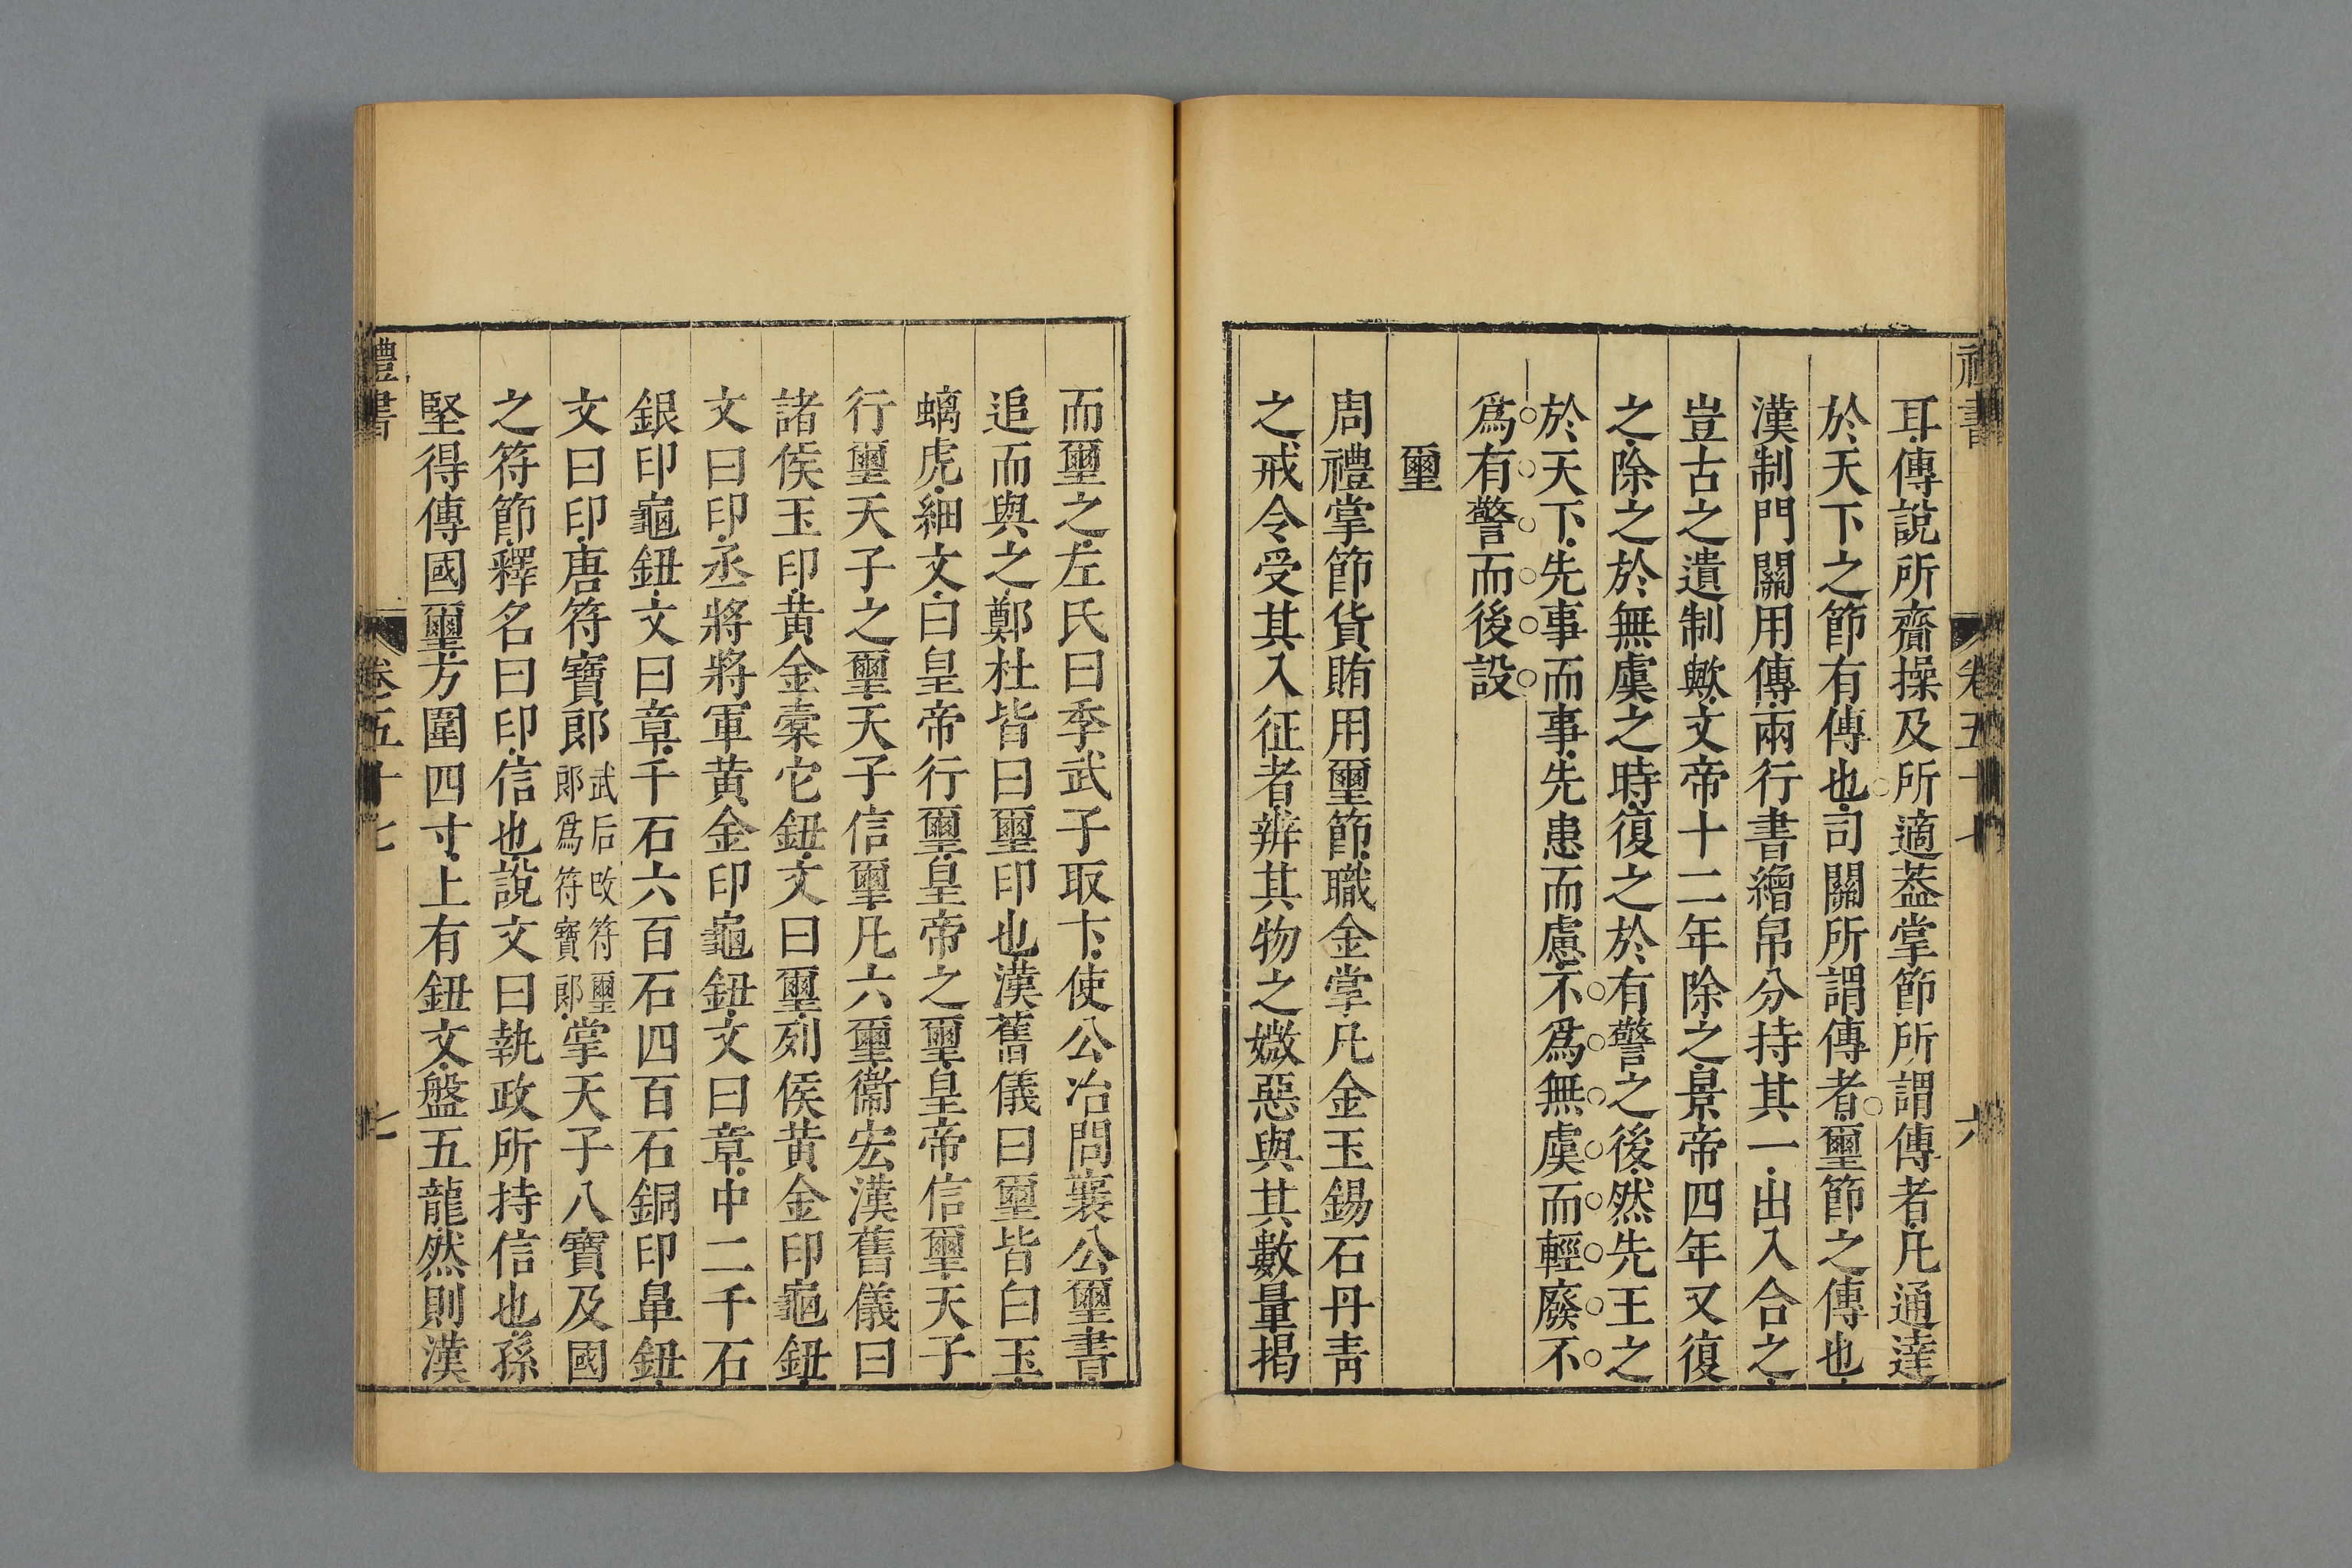 禮書 卷五十七 六
耳傳說所齎操及所適葢掌節所謂傳者凡通達
於天下之節有傳也司關所謂傳者璽節之傳也
漢制門關用傳兩行書繒帛分持其一出入合之
豈古之遺制歟文帝十二年除之景帝四年又復
之除之於無虞之時復之於有警之後然先王之
於天下先事而事先患而慮不爲無虞而輕廢不
爲有警而後設
璽
周禮掌節貨賄用璽節職金掌凡金玉錫石丹靑
之戒令受其入征者辨其物之媺惡與其數量揭
而璽之左氏曰季武子取卞使公冶問襄公璽書
追而與之鄭杜皆曰璽印也漢舊儀曰璽皆白玉
螭虎細文曰皇帝行璽皇帝之璽皇帝信璽天子
行璽天子之璽天子信璽凡六璽衞宏漢舊儀曰
諸侯玉印黄金橐它鈕文曰璽列侯黄金印龜鈕
文曰印丞將將軍黄金印龜鈕文曰章中二千石
銀印龜鈕文曰章千石六百石四百石銅印鼻鈕
文曰印唐符寶郞武后改符璽郞爲符寶郞掌天子八寶及國
之符節釋名曰印信也說文曰執政所持信也孫
堅得傳國璽方圍四寸上有鈕文盤五龍然則漢
禮書 卷五十七 七